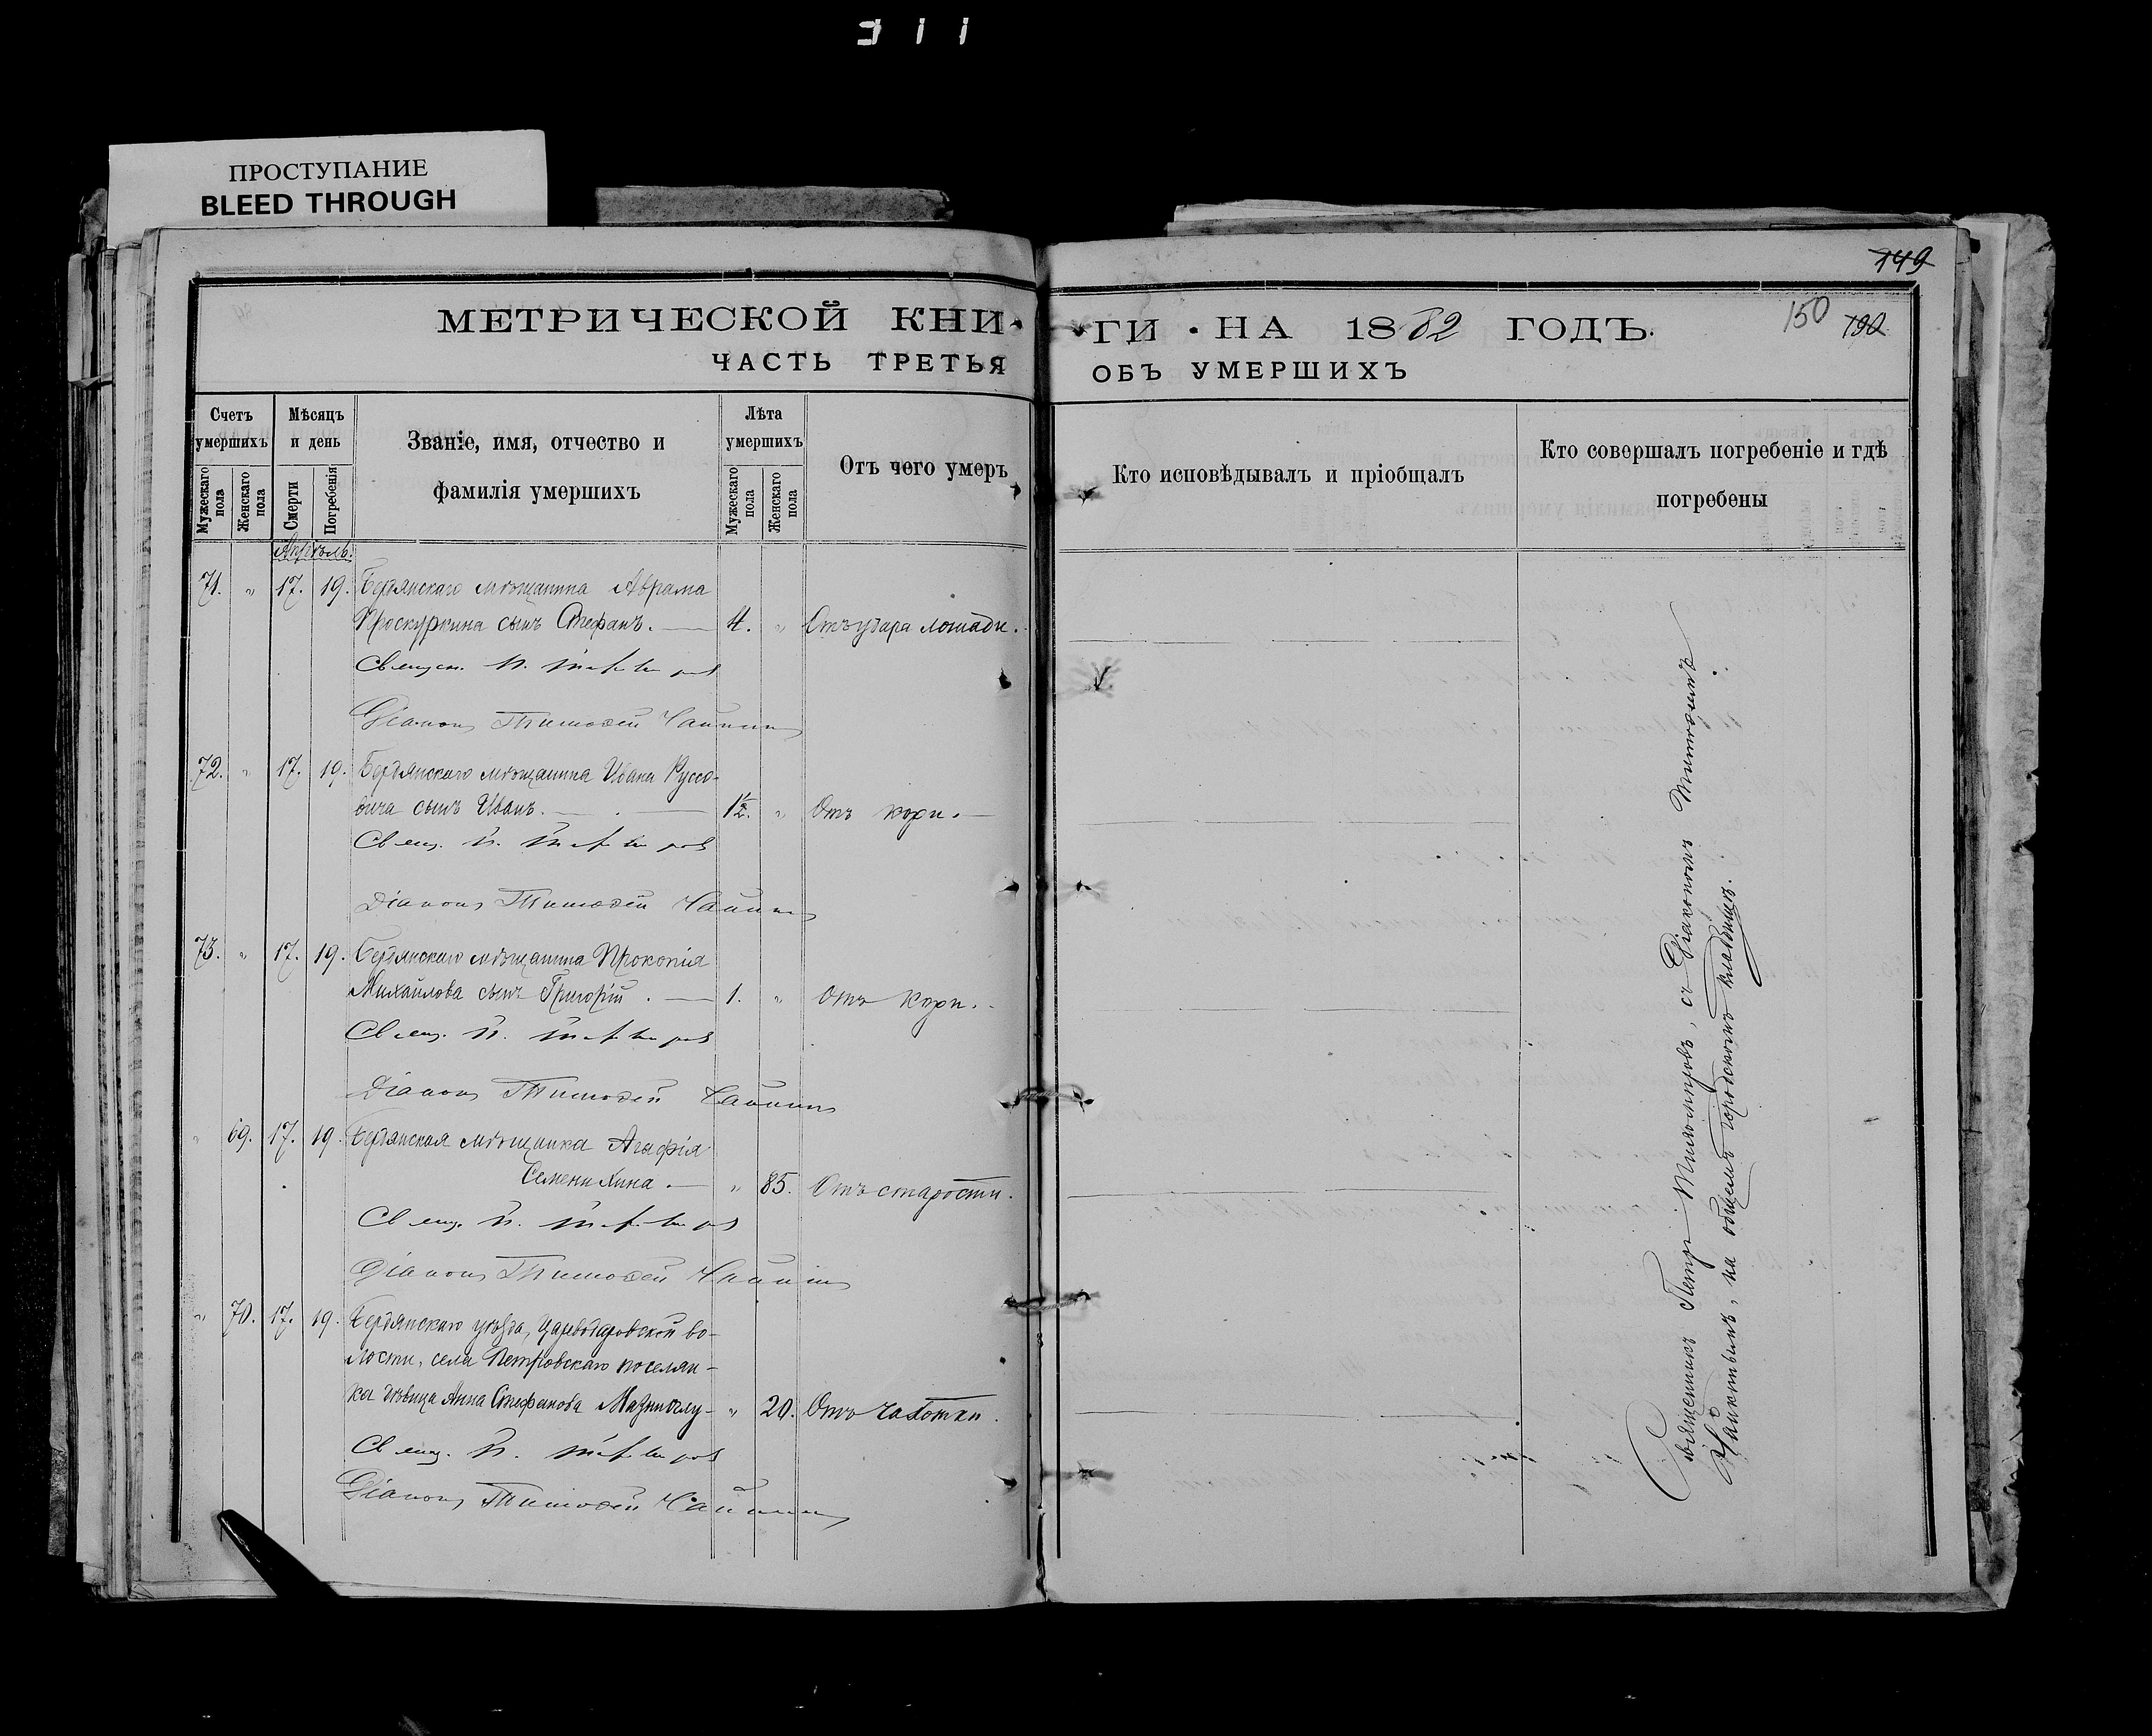 ПРОСТУПАНИЕ
BLEED THROUGH
149
150 190
МЕТРИЧЕСКОЙ КНИ-ГИ НА 1882 ГОДЪ.
ЧАСТЬ ТРЕТЬЯ ОБЪ УМЕРШИХЪ
Счетъ умершихъ
Мужескаго пола
Женскаго пола
Мѣсяцъ и день
Смерти
Погребенія
Званіе, имя, отчество и
фамилія умершихъ
Лѣта умершихъ
Мужескаго пола
Женскаго пола
Отъ чего умеръ
Кто исповѣдывалъ и пріобщалъ
Кто совершалъ погребеніе и гдѣ
погребены
Апрѣль.
71. " 17. 19. Бердянскаго мѣщанина Аврама
Проскуркина сынъ Стефанъ. 4. " Отъ удара лошади.
Священ. П.
Діаконъ Тимоѳей
72. " 17. 19. Бердянскаго мѣщанина Ивана Руссо-
вича сынъ Иванъ. 1½. " Отъ кори.
Свящ. П.
Діаконъ Тимоѳей
73. " 17. 19. Бердянскаго мѣщанина Прокопія
Михайлова сынъ Григорій. 1. " Отъ кори.
Свящ. П.
Діаконъ Тимоѳей
" 69. 17. 19. Бердянская мѣщанка Агафія
Семенихина. " 85. Отъ старости.
Свящ. П.
Діаконъ Тимоѳей
" 70. 17. 19. Бердянскаго уѣзда, Царедаровской во-
лости, села Петровскаго поселян-
ка дѣвица Анна Стефанова " 20. Отъ чахотки.
Свящ. П.
Діаконъ Тимоѳей
Священникъ Петръ съ Діакономъ
на общемъ городскомъ кладбищѣ.